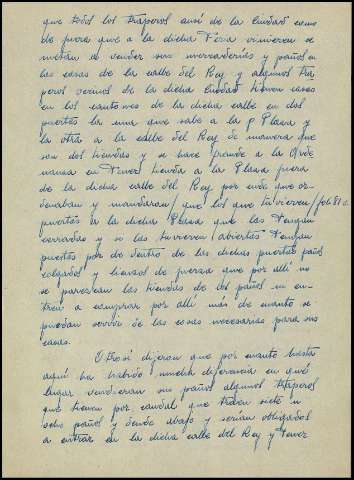 que todos los traperos ansi de la ciudad como
de fuera que a la dicha feria vinieren se
metan a vender sus mercaderías y paños en
las casas de la calle del Rey y algunos tra
peros vecinos de la dicha ciudad tienen casas
en los cantones de la dicha calle en dos
puertas la una que sale a la Plaza y
la otra a la calle del Rey de manera que
son dos tiendas y se hace fraude a la Orde
nanza en tener tienda a la Plaza fuera
de la dicha calle del Rey por ende que or-
denaban y mandaron/ que los que tuvieren/fol. 81 v.
puertas a la dicha Plaza que las tengan
cerradas y si las tuvieren/abiertas tengan
puertas por de dentro de las dichas puertas paños
colgados y lienzos de fuerza que por allí no
se parezcan las tiendas de los paños ni en-
tren a comprar por allí más de cuanto se
puedan servir de las cosas necesarias para sus
casas.
Otrosí dijeron que por cuanto hasta
aquí ha habido mucha diferencia en qué
lugar venderían sus paños algunos traperos
que tienen por caudal que traen siete u
ocho paños y dende abajo y serían obligados
a entrar en la dicha calle del Rey y tener